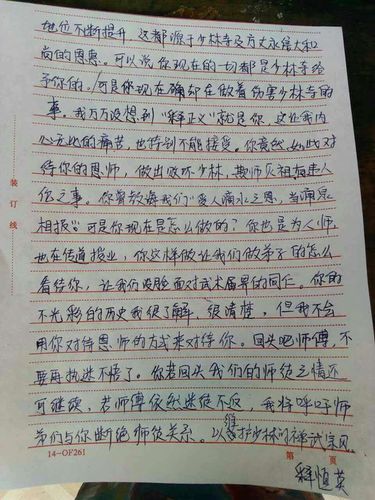 地位不断提升，这都源于少林寺及方丈永信大和
尚的恩惠。可以说你现在的一切都是少林寺给
予你的。可是你现在确却在做着伤害少林寺的
事。我万万没想到“释正义”就是你，这让我内
心无比的痛苦，也特别不能接受。你竟然如此对
待你的恩师，做出败坏少林，欺师灭祖轰人
伦之事。你曾教每我们“受人滴水之恩，当涌泉
相报”可是你现在是怎么做的？你也是为人师，
也在传道授业，你这样做让我们做弟子的怎么
看待你，让我们没脸面对武术届早的同仁。你的
不光彩的历史我很了解，很清楚，但我不会
用你对待恩师的方式来对待你。回头吧师傅，不
要再执迷不悟了。你若回头我们的师徒之情还
可继续，若师傅依然迷徒不返，我将呼吁师
弟们与你断绝师徒关系。以维护少林的禅武宗风。
装订线
14-OF261
第 页
释恒英